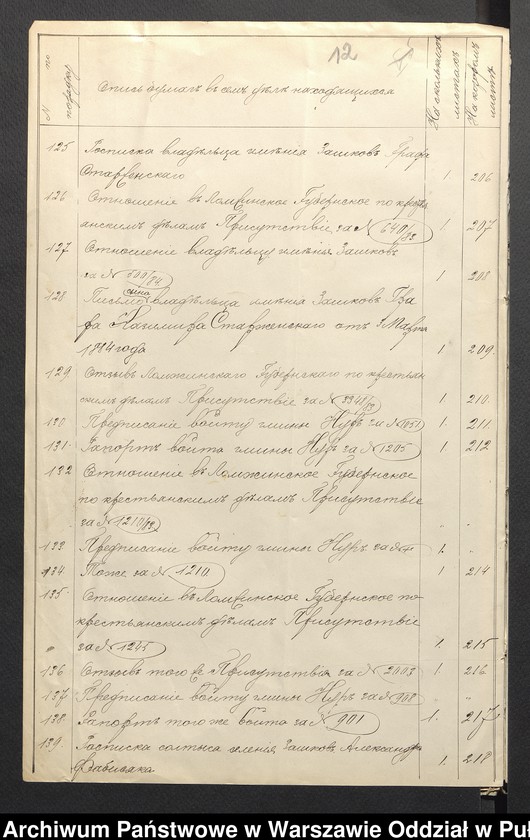 12
№ по порядку
Опись бумагъ въ семъ дѣлѣ находящихся
На сколькихъ листахъ
На которомъ листѣ
125 Росписка владѣльца имѣнія Зашковъ Графа
Старженскаго 1 206
126 Отношеніе въ Ломжинское Губернское по кресть
янскимъ дѣламъ Присутствіе за № 640/83 1 207
127 Отношеніе владѣльцу имѣнія Зашковъ
за № 500/84 1 208
сына
128 Письмо владѣльца имѣнія Зашковъ Гра
фа Казимира Старженскаго отъ 3 Марта
1884 года 1 209
129 Отзывъ Ломжинскаго Губернскаго по крестьян
скимъ дѣламъ Присутствіе за № 1. 210.
130 Предписаніе войту гмины Нуръ за № 1051 1. 211.
131 Рапортъ войта гмины Нуръ за № 1205 1. 212
132 Отношеніе въ Ломжинское Губернское
по крестьянскимъ дѣламъ Присутствіе
за № 1210/83 " "
133 Предписаніе войту гмины Нуръ за № 1. "
134 Тоже за № 1210. 1 214
135 Отношеніе въ Ломжинское Губернское по
крестьянскимъ дѣламъ Присутствіе
за № 1245 1. 215
136 Отзывъ того же Присутствія за № 2003 1. 216
137 Предписаніе войту гмины Нуръ за № 908 " "
138 Рапортъ того же войта за № 901 1. 217
139 Росписка солтыса имѣнія Зашковъ Александра
1. 218
Archiwum Państwowe w Warszawie Oddział w Puł